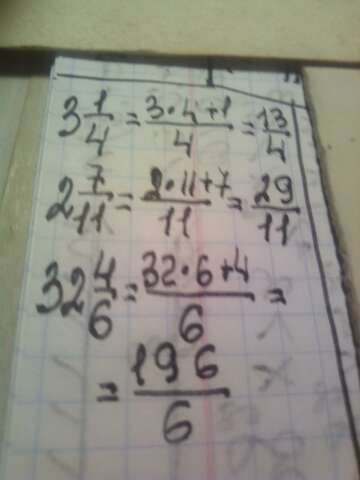 3 1/4 = 3·4+1/4 = 13/4
2 7/11 = 2·11+7/11 = 29/11
32 4/6 = 32·6+4/6 =
= 196/6